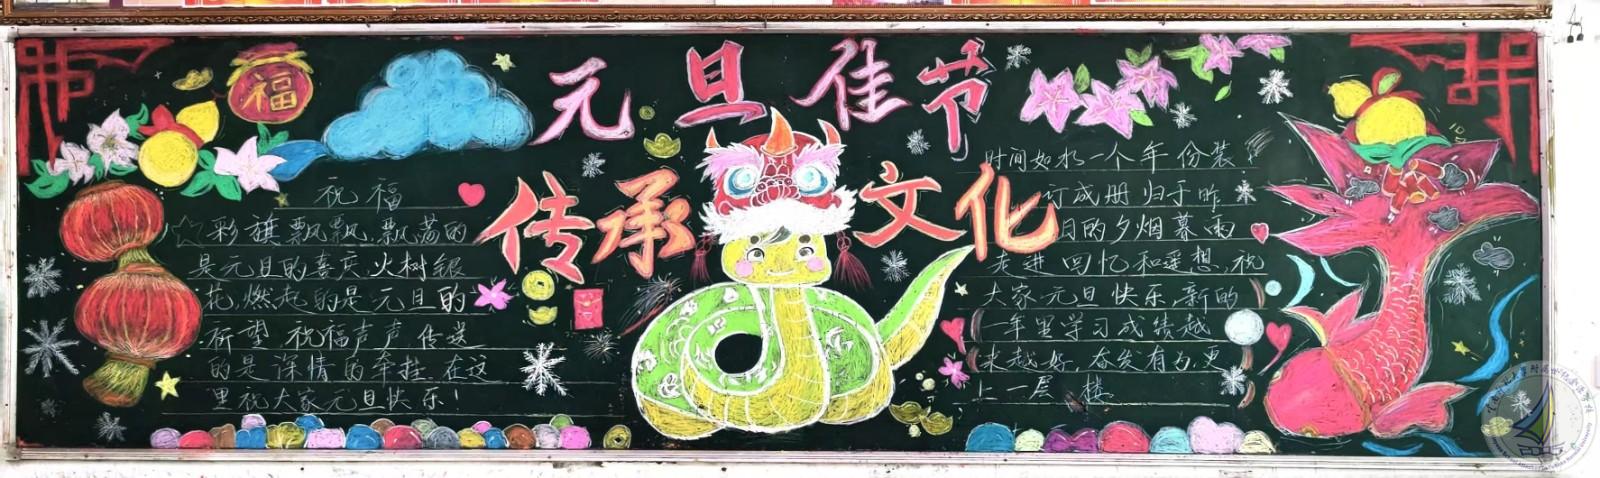 元旦佳节
传承文化
福
祝福
彩旗飘飘,飘荡的
是元旦的喜庆,火树银
花,燃起的是元旦的
祈望,祝福声声,传送
的是深情的牵挂,在这
里祝大家元旦快乐!
时间如水一个年份装
订成册归于昨
日的夕烟暮雨
走进回忆和遥想,祝
大家元旦快乐,新的
一年里学习成绩越
来越好,奋发有为,更
上一层楼